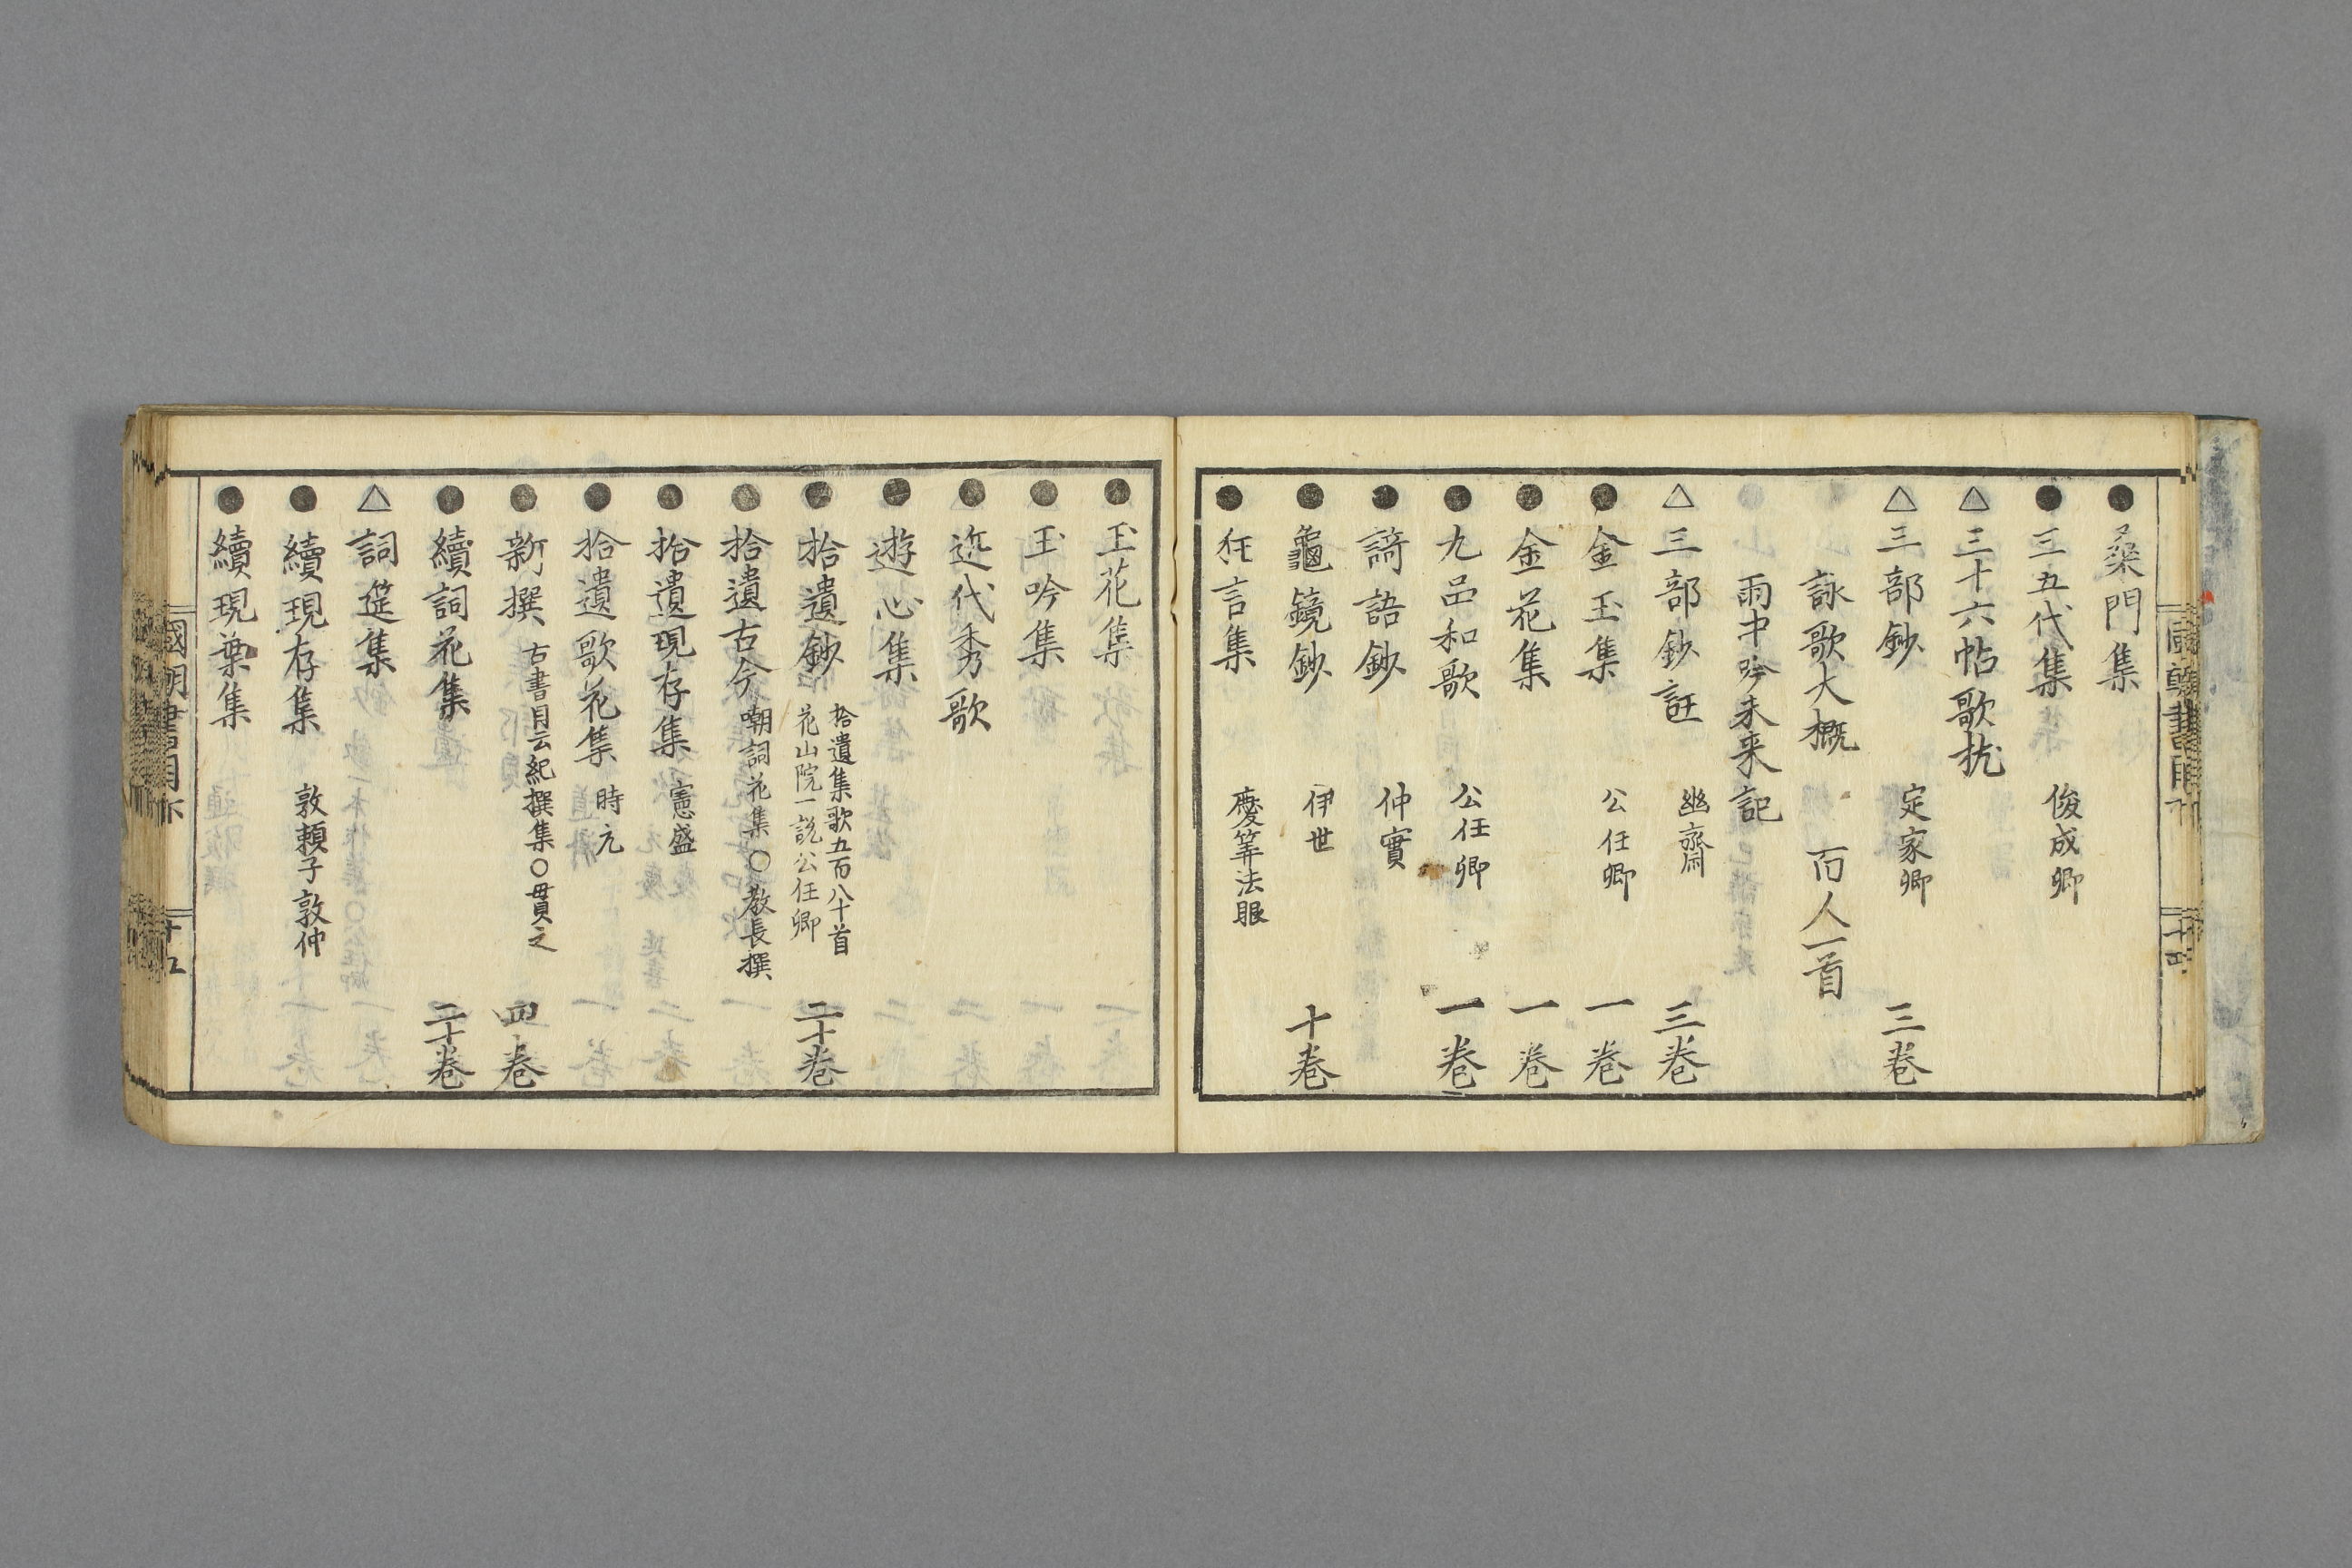 ●桒門集
●三五代集 俊成卿
△三十六帖歌抌
△三部鈔 定家卿 三巻
詠歌大概 百人一首
雨中吟未来記
△三部鈔註 幽齋 三巻
●金玉集 公任卿 一巻
●金花集 一巻
●九品和歌 公任卿 一巻
●謌語鈔 仲實
●龜鏡鈔 伊世 十巻
●狂言集 慶筭法眼
●玉花集
●玉吟集
●近代秀歌
●遊心集
●拾遺鈔 拾遺集歌五百八十首 二十巻
花山院一説公任卿
●拾遺古今 嘲詞花集○教長撰
●拾遺現存集 憲盛
●拾遺歌花集 時元
●新撰 古書目云紀撰集○貫之 四巻
●續詞花集 二十巻
△詞筵集
●續現存集 敦頼子敦仲
●續現葉集